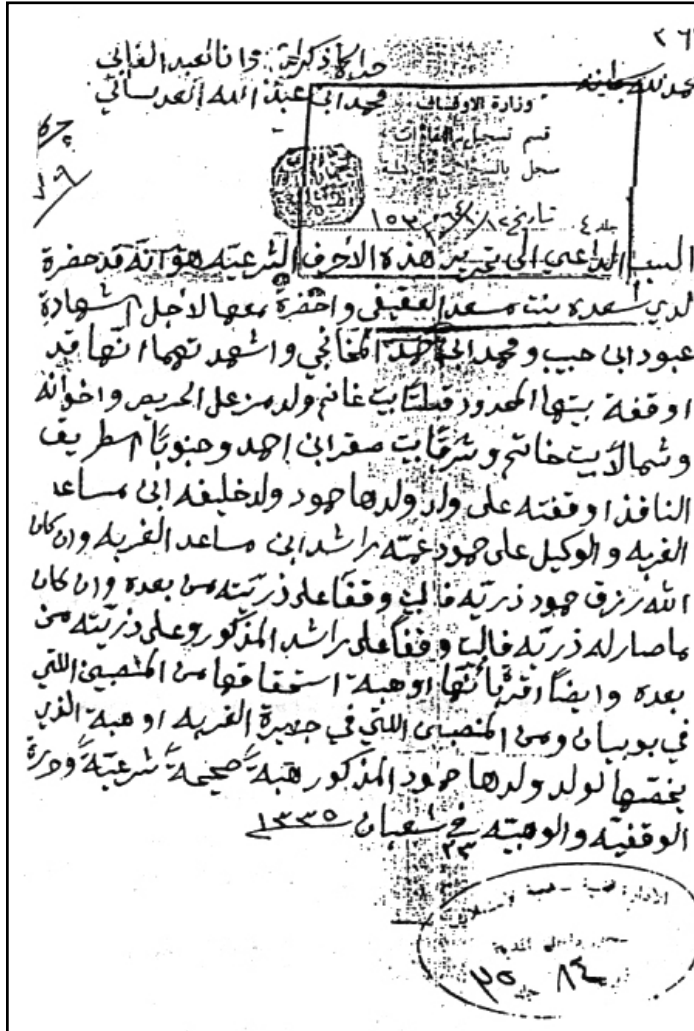 ٢٦
الحمد لله
جرى ما ذكر وانا العبد الفاني
محمد ابن عبد الله العدساني
وزارة الاوقاف
قسم تسجيل العقارات
سجل بالسجلات
جلد ٤ تاريخ
السبب الداعي الى تحرير هذه الاحرف الشرعيه هو انه قد حضرة
لدي سعده بنت مسعد العقيلي واحضرة معها لاجل الشهادة
عبود ابن حبيب ومحمد ابن احمد واشهدتهما انها قد
اوقفة بيتها المحدود قبلتا بيت غانم ولد مزعل الحريص واخوانه
وشمالا بيت خاتم وشرقا بيت صقر ابن احمد وجنوبا الطريق
النافذ اوقفته على ولد ولدها حمود ولد خليفه ابن مساعد
الغربه والوكيل على حمود عمته راشد ابن مساعد الغربه وان كان
الله رزق حمود ذريه فالبيت وقفا على ذريته من بعده وان كان
ما صار له ذريه فالبيت وقفا على راشد المذكور وعلى ذريته من
بعده وايضا اقرة بأنها اوهبة استحقاقها من المنصبين اللتي
في بوبيان ومن المنصبين اللتي في جزيرة الغربه اوهبة الذي
يخصها لولد ولدها حمود المذكور هبة صحيحة شرعية
الوقفيه والوهبيه في ٢٣ شعبان ١٣٣٥
الادارة
٨٤
جلد ٣٥